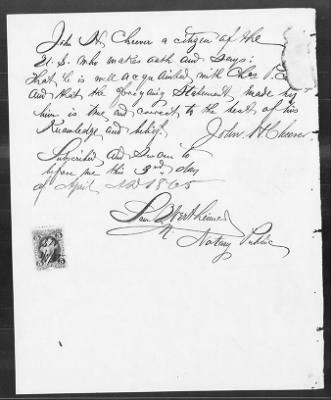 John H. Cheever a citizen of the
U.S. who makes oath and says:
That he is well acquainted with Chas. P.
And that the foregoing Statement made by
him is true and correct to the best of his
Knowledge and belief.
John H. Cheever
Subscribed and Sworn to
before me this 3rd day
of April AD 1865
Notary Public